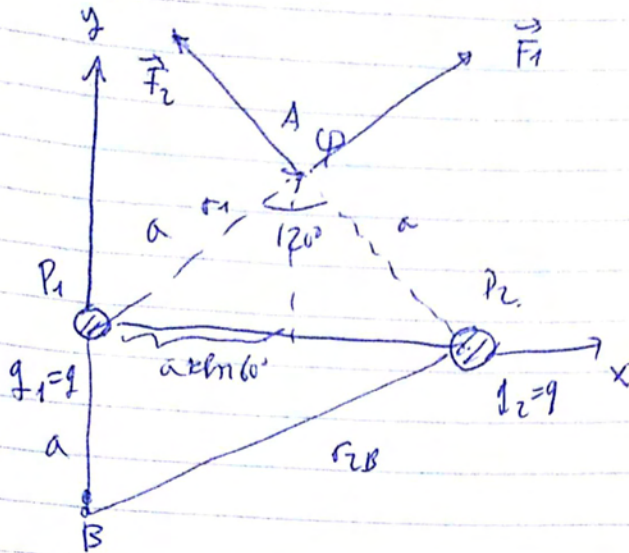 y
F₁
F₂
A φ
r₁
a 120° a
P₁ P₂
a × sin 60°
q₁=q q₂=q x
a r₂B
B